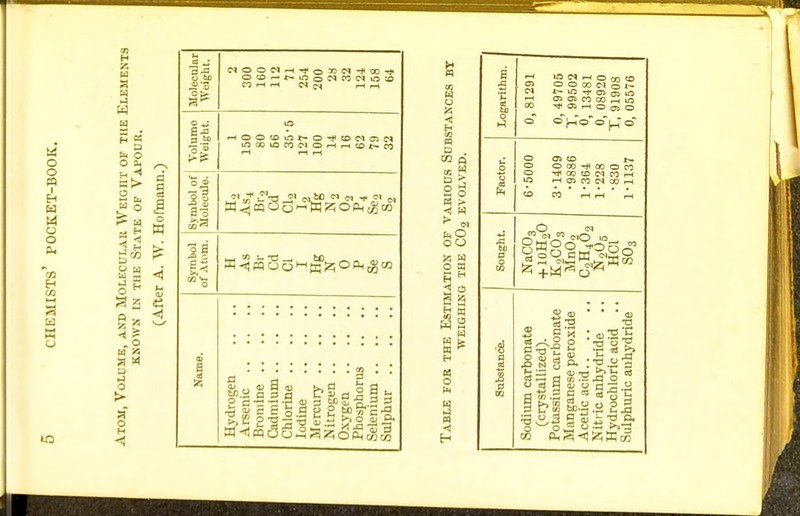 5 CHEMISTS' POCKET-BOOK.
ATOM, VOLUME, AND MOLECULAR WEIGHT OF THE ELEMENTS
KNOWN IN THE STATE OF VAPOUR.
(After A. W. Hofmann.)
Name. Symbol of Atom. Symbol of Molecule. Volume Weight. Molecular Weight.
Hydrogen .. .. H H2 1 2
Arsenic .. .. As As4 150 300
Bromine .. .. Br Br2 80 160
Cadmium .. .. Cd Cd 56 112
Chlorine .. .. Cl Cl2 35·5 71
Iodine .. .. I I2 127 254
Mercury .. .. Hg Hg 100 200
Nitrogen .. .. N N2 14 28
Oxygen .. .. O O2 16 32
Phosphorus .. P P4 62 124
Selenium .. .. Se Se2 79 158
Sulphur .. .. S S2 32 64
TABLE FOR THE ESTIMATION OF VARIOUS SUBSTANCES BY
WEIGHING THE CO2 EVOLVED.
Substance. Sought. Factor. Logarithm.
Sodium carbonate NaCO3 6·5000 0, 81291
(crystallized). +10H2O
Potassium carbonate K2CO3 3·1409 0, 49705
Manganese peroxide MnO2 ·9886 1, 99502
Acetic acid.. .. .. C2H4O2 1·364 0, 13481
Nitric anhydride .. N2O5 1·228 0, 08920
Hydrochloric acid .. HCl ·830 1, 91908
Sulphuric anhydride SO3 1·1137 0, 05576